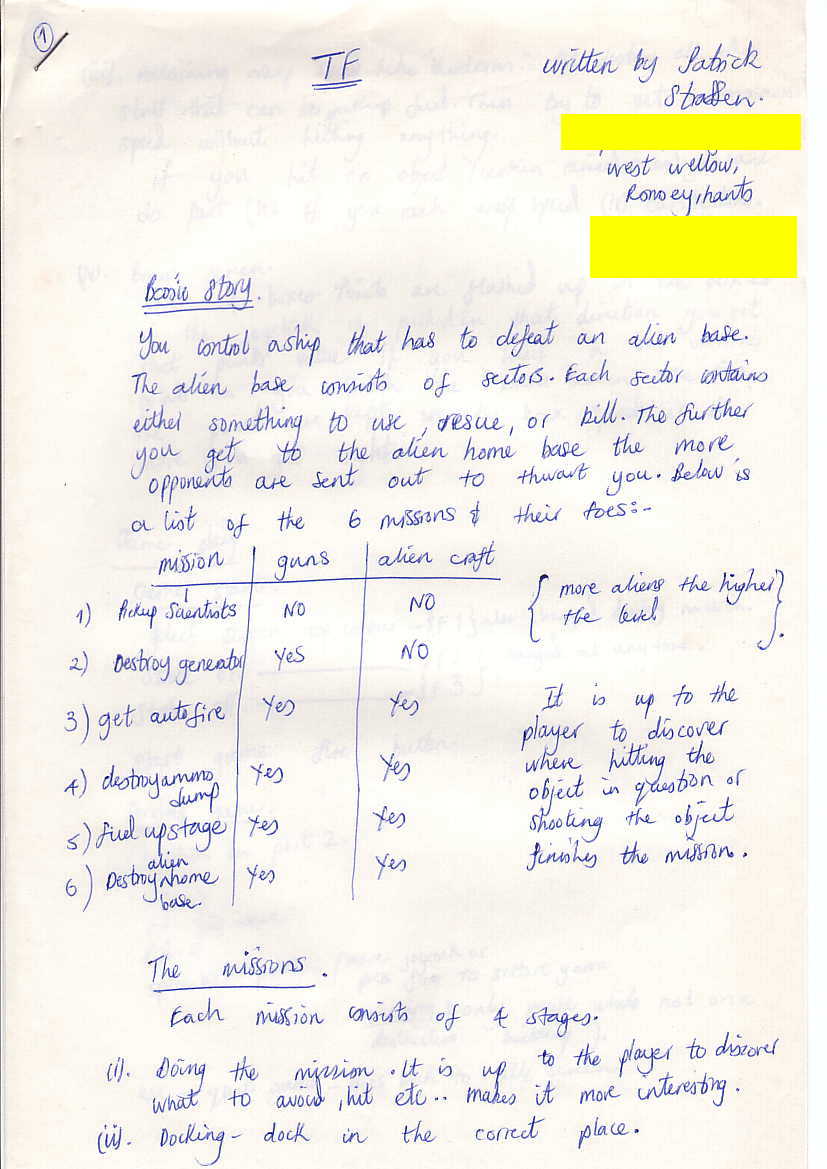 1
TF
written by Patrick
Straffen.
west wellow,
Romsey, hants
Basic story.
You control a ship that has to defeat an alien base.
The alien base consists of sectors. Each sector contains
either something to use, resue, or kill. The further
you get to the alien home base the more
opponents are sent out to thwart you. Below is
a list of the 6 missions & their foes:-
mission | guns | alien craft
1) Pickup Scientists | NO | NO
2) Destroy generator | Yes | NO
3) get autofire | Yes | Yes
4) destroy ammo dump | Yes | Yes
5) fuel up stage | Yes | Yes
6) Destroy alien home base. | Yes | Yes
{ more aliens the higher
the level }.
It is up to the
player to discover
where hitting the
object in question or
shooting the object
finishes the mission.
The missions.
Each mission consists of 4 stages.
(i). Doing the mission. It is up to the player to discover
what to avoid, hit etc.. makes it more interesting.
(ii). Docking - dock in the correct place.